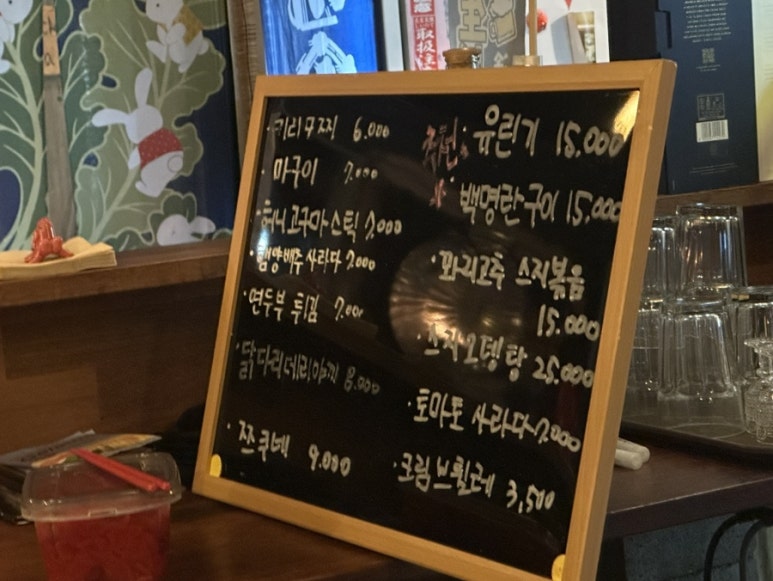 · 키리모찌 6.000
· 마구이 7.000
· 허니고구마스틱 7.000
사라다 7.000
· 연두부 튀김 7.000
· 닭다리데리야끼 8.000
· 쯔쿠네 9.000
추천 · 유린기 15.000
· 백명란구이 15.000
· 꽈리고추 스지볶음
15.000
· 스지오뎅탕 25.000
· 토마토 사라다 7.000
· 크림브륄레 3,500